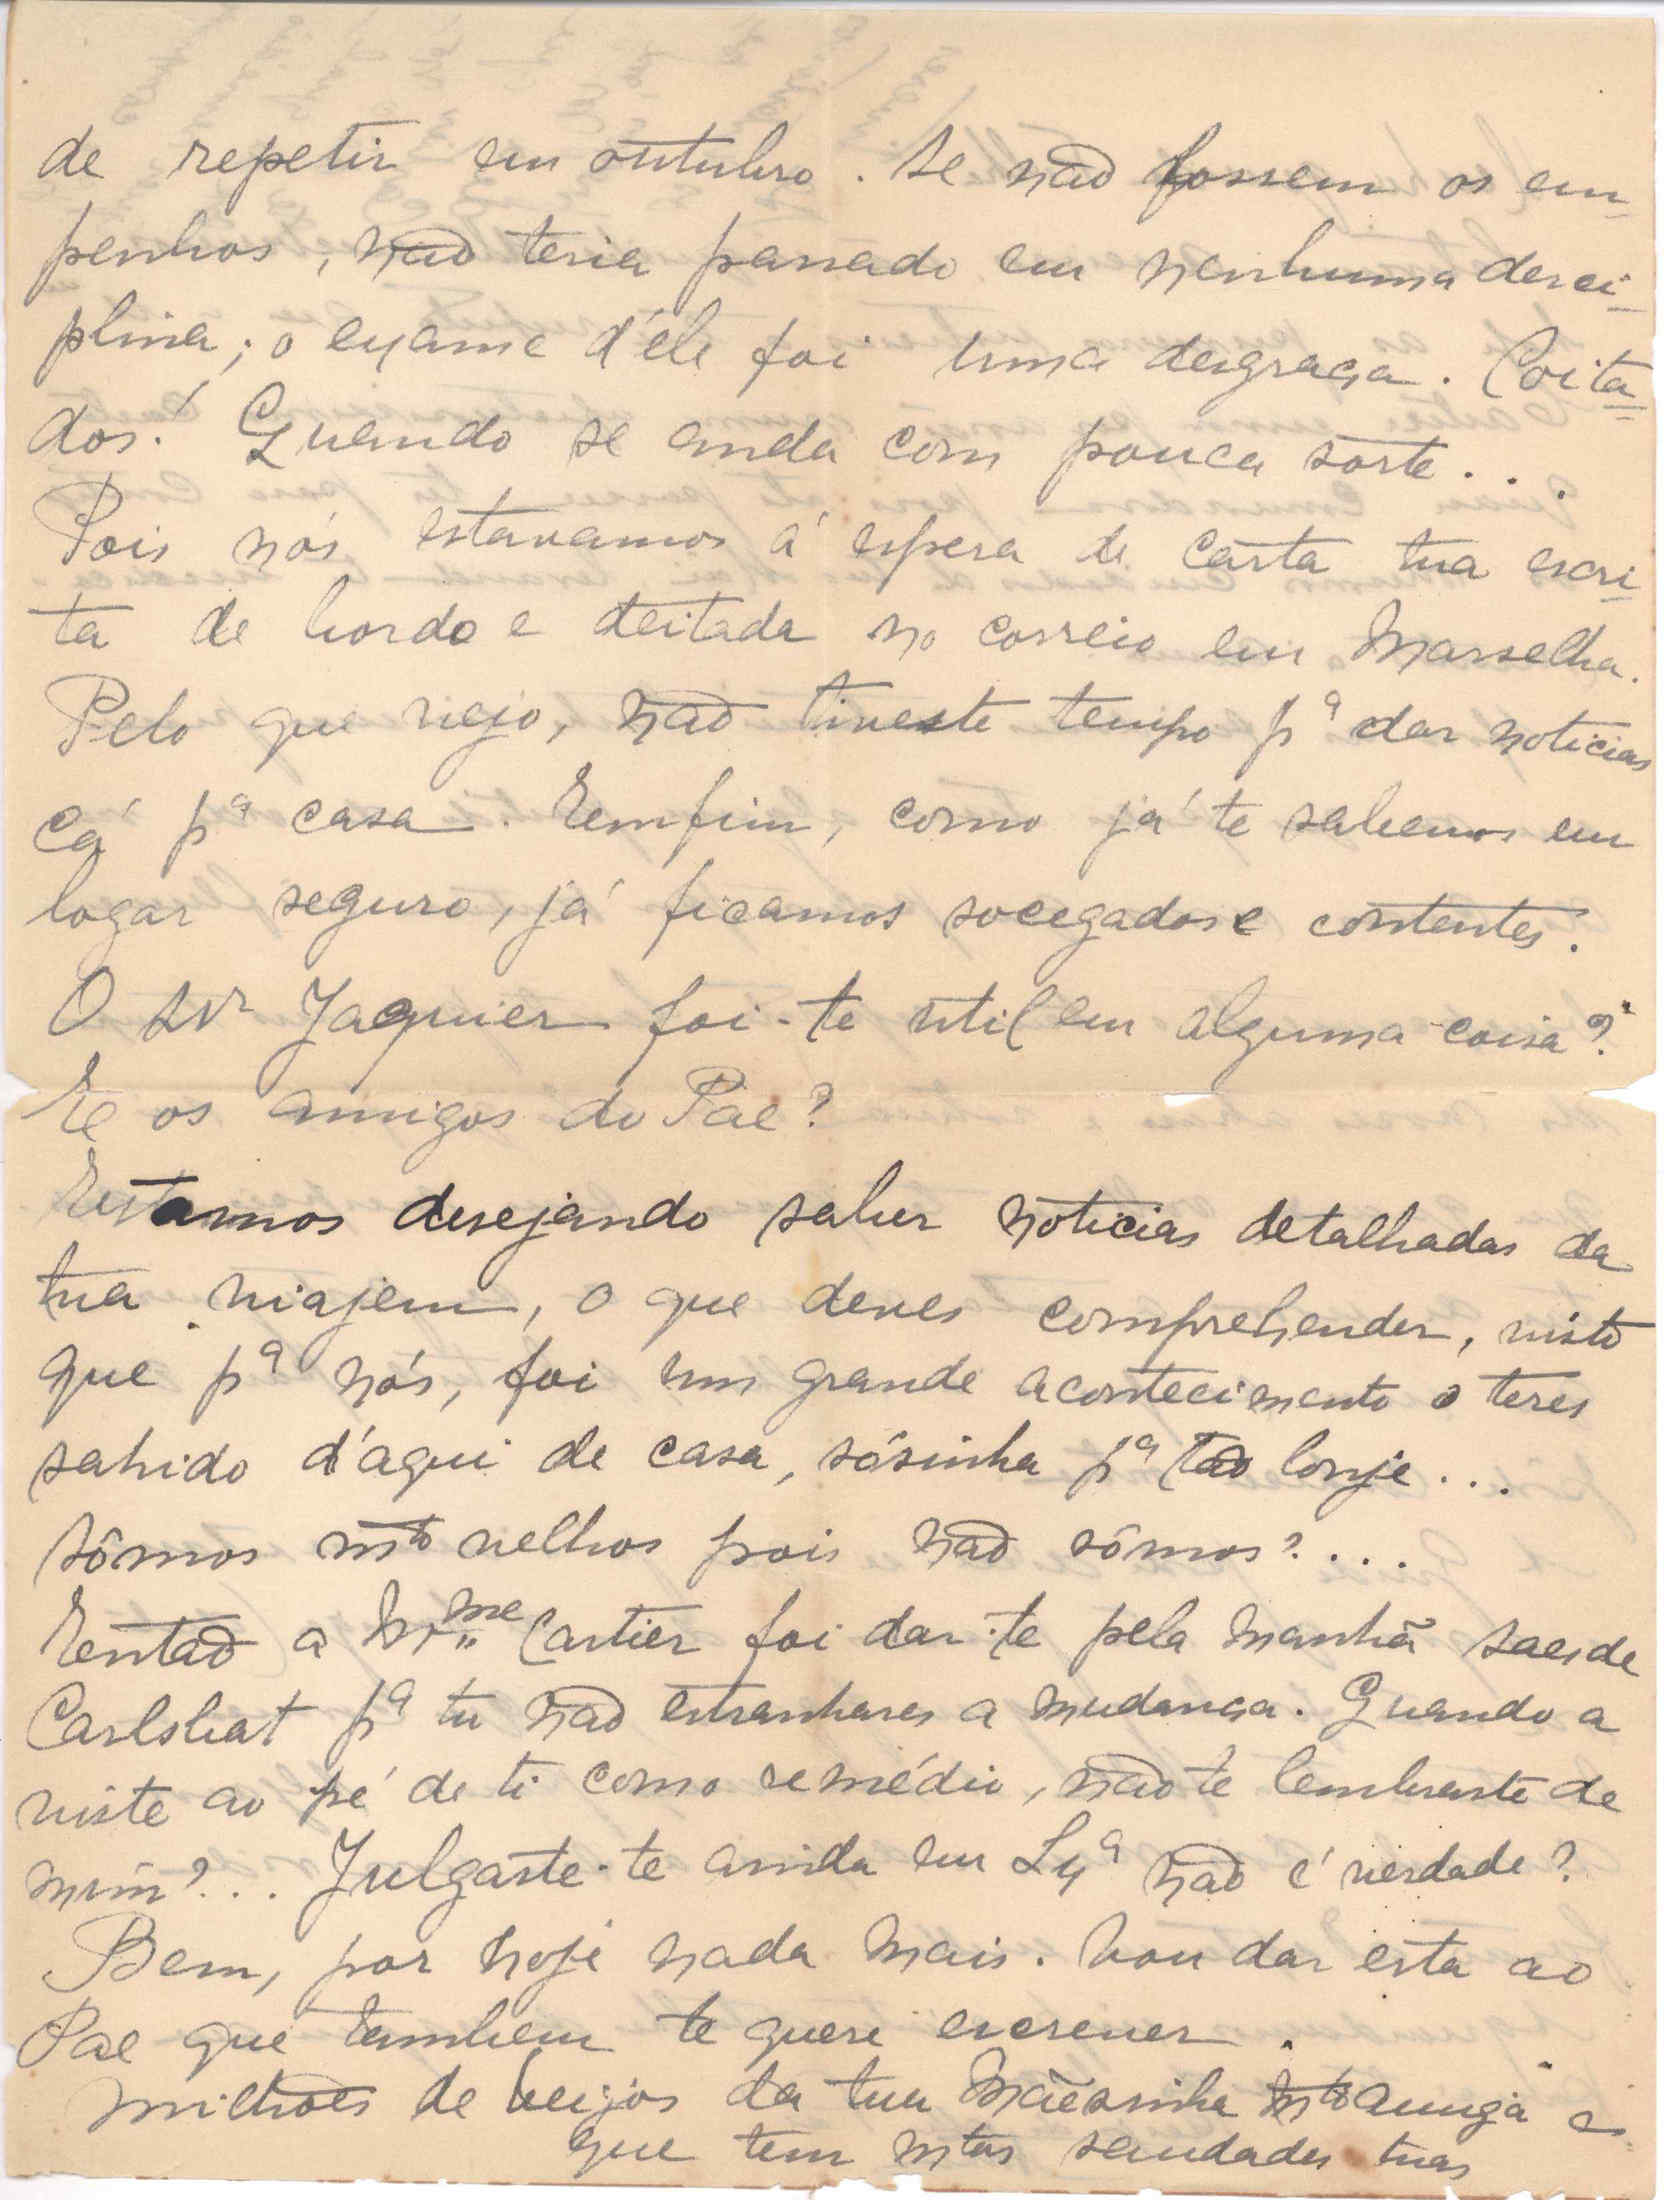 de repetir em outubro. Se não fossem os em-
penhos, não teria passado em nenhuma desci-
plina; o exame d'éle foi uma desgraça. Coita-
dos! Quando se anda com pouca sorte...
Pois nós estavamos á espera de carta tua escri-
ta de bordo e deitada no correio em Marselha.
Pelo que vejo, não tiveste tempo pª dar noticias
cá pª casa. Emfim, como já te sabemos em
logar seguro, já ficamos socegados e contentes.
O Snr Jaquier foi-te util em alguma coisa?
E os amigos do Pae?
Estamos desejando saber noticias detalhadas da
tua viajem, o que deves comprehender, visto
que pª nós, foi um grande acontecimento o teres
sahido d'aqui de casa, sósinha pª tão lonje...
Sômos mto velhos pois não sômos?....
Então a Mme Cartier foi dar-te pela manhã saes de
Carlsbat pª tu não estranhares a mudança. Quando a
viste ao pé de ti como remédio, não te lembraste de
mim?... Julgaste-te ainda em Lxª não é verdade?
Bem, por hoje nada mais. Vou dar esta ao
Pae que tambem te quere escrever.
Milhões de beijos da tua Mãesinha mto amiga e
que tem mtas saudades tuas